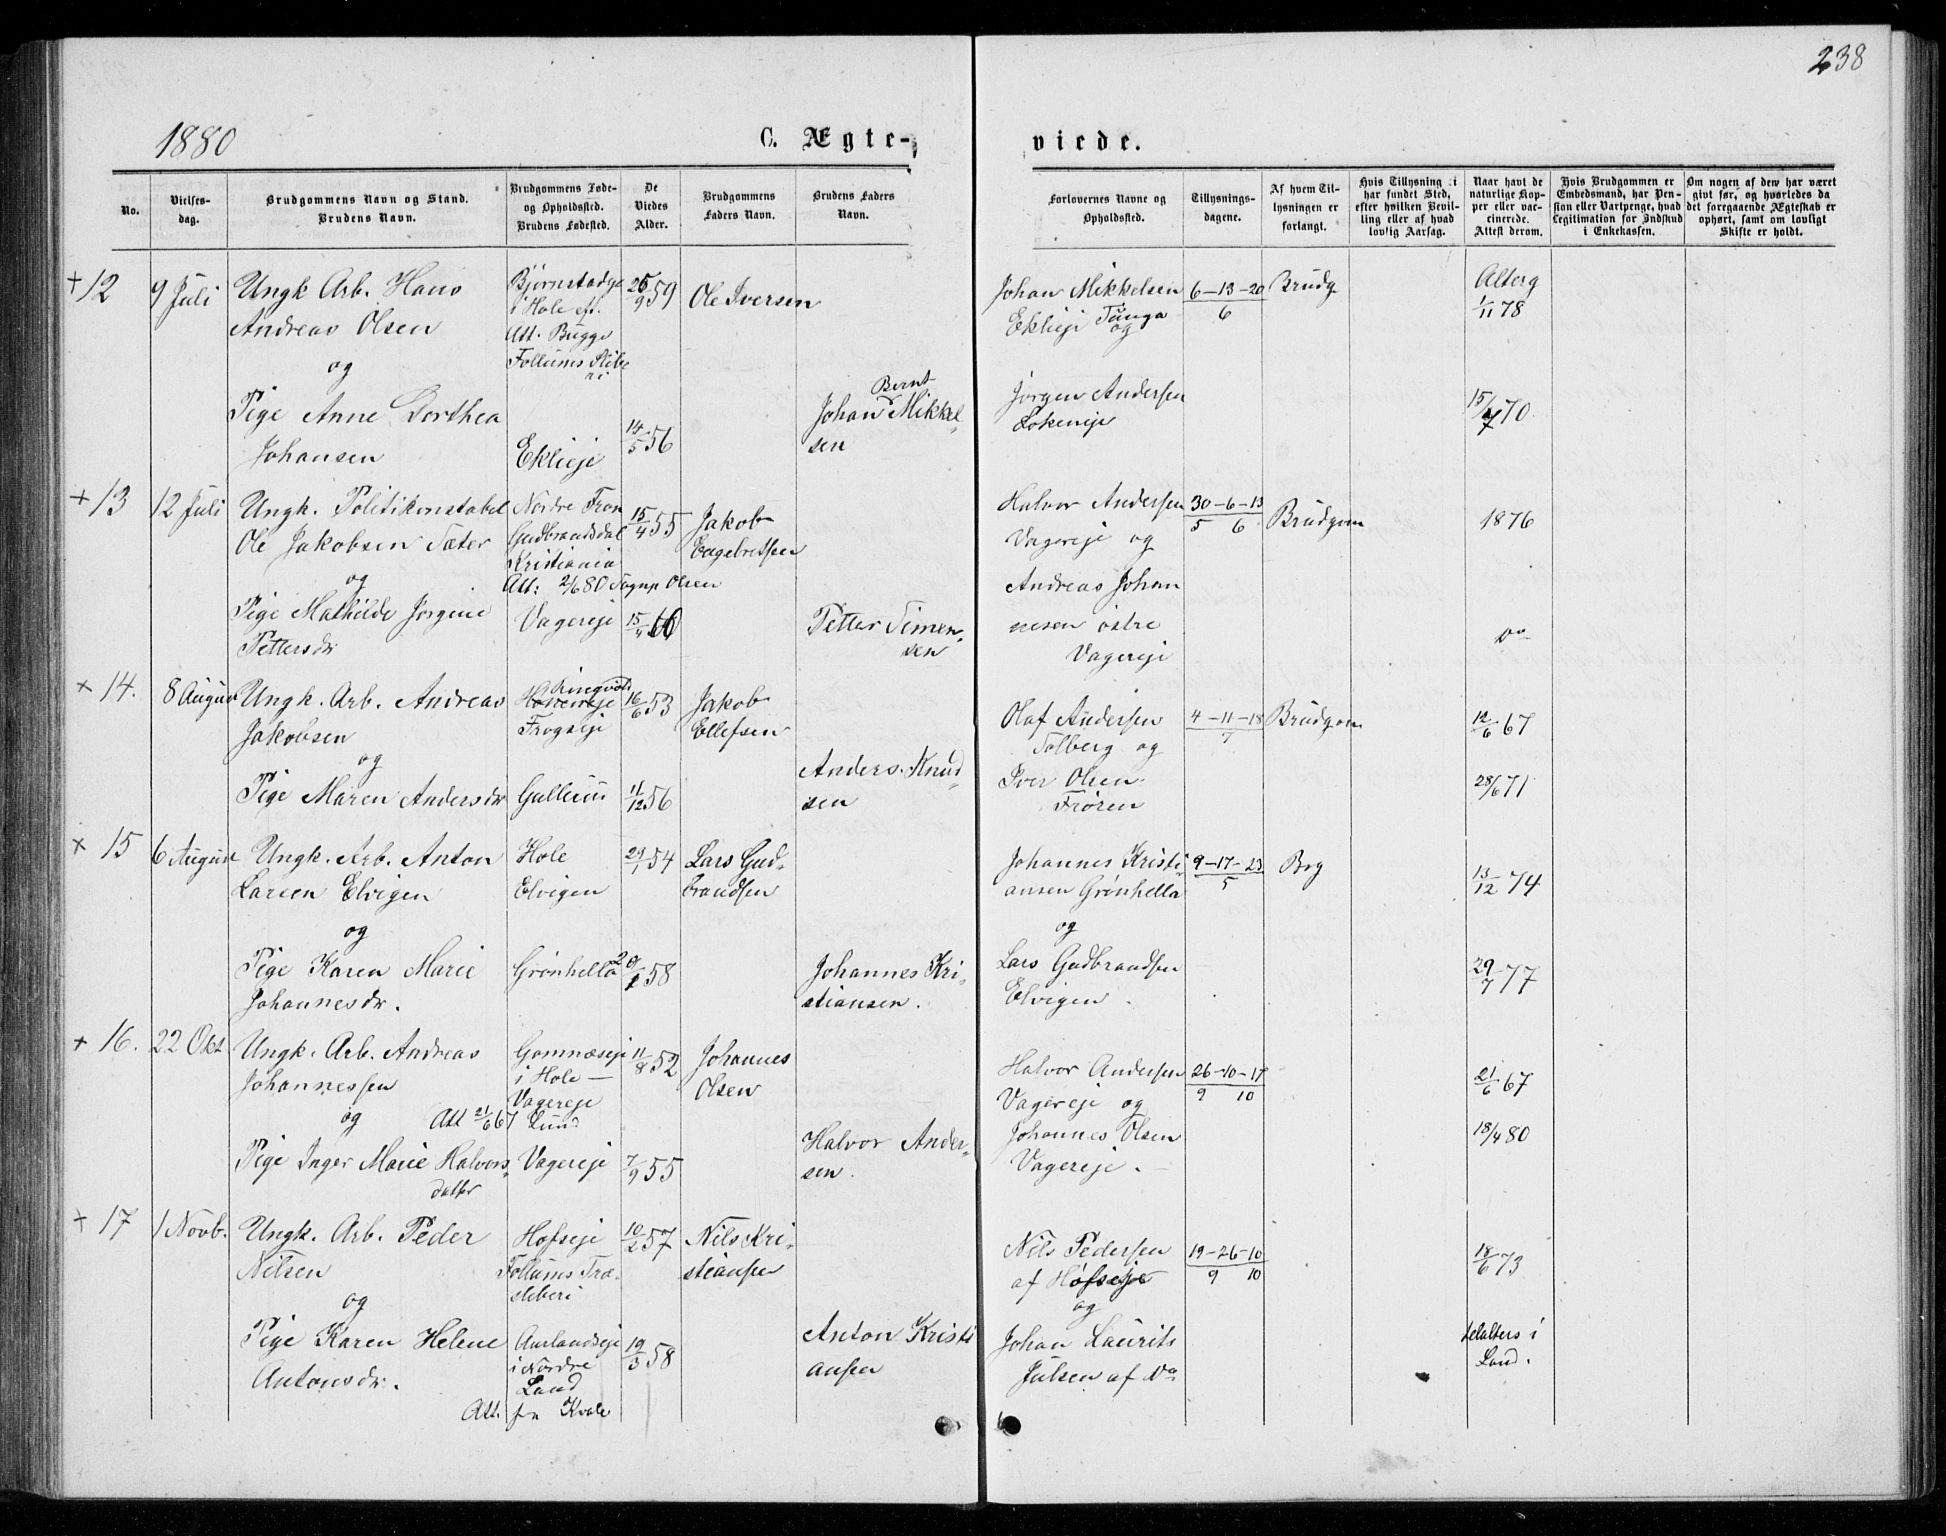 238
1880
C. Ægte-
viede.
No.
Vielses-
dag.
Brudgommens Navn og Stand.
Brudens Navn.
Brudgommens Føde-
og Opholdssted.
Brudens Fødested.
De
Viedes
Alder.
Brudgommens
Faders Navn.
Brudens Faders
Navn.
Forlovernes Navne og
Opholdssted.
Tillysnings-
dagene.
Af hvem Til-
lysningen er
forlangt.
Hvis Tillysning ei
har fundet Sted,
efter hvilken Bevil-
ling eller af hvad
lovlig Aarsag.
Naar havt de
naturlige Kop-
per eller vac-
cinerede.
Attest derom.
Hvis Brudgommen er
Embedsmand, har Pen-
sion eller Vartpenge, hvad
Legitimation for Indskud
i Enkekassen.
Om nogen af dem har været
givt før, og hvorledes da
det foregaaende Ægteskab er
ophørt, samt om lovligt
Skifte er holdt.
+ 12
9 Juli
Ungk Arb. Hans
Andreas Olsen
og
Pige Anne Dorthea
Johansen
Bjørnstadge
i Hole eft.
Att. Bugge
Follums
Eklieje
14/5 56
Ole Iversen
Bernt
Johan Mikkel-
sen
Johan Mikkelsen
Eklieje
og
Jørgen Andersen
Lokeneje
6-13-20
6
Brudg
1/11 78
15/7 70.
+ 13
12 Juli
Ungk. Politikonstabel
Ole Jakobsen Sæter
og
Pige Mathilde Jørgine
Pettersdr
Nordre Fron
Gudbrandsdal
Kristiania
Att: 2/6 80 Olsen
Vagereje
15/4 55
15/4 60
Jakob
Engebretsen
Petter Simen-
sen
Halvor Andersen
Vagereje og
Andreas Johan
nesen østre
Vagereje
30-6-13
5 6
Brudgom
1876
Do
+ 14.
8 August
Ungk. Arb. Andreas
Jakobsen
og
Pige Maren Andersdr
Ringvold
Frogseje
Gullerud
16/6 53
11/12 56
Jakob
Ellefsen
Anders Knud-
sen
Olaf Andersen
Solberg og
Iver Olsen
Frøren
4-11-18
7
Brudgom
12/6 67
28/6 71
+ 15
6 August
Ungk. Arb. Anton
Larsen Elvigen
og
Pige Karen Marie
Johannesdr.
Hole
Elvigen
Grønhella
29/1 54
58
Lars Gud-
brandsen
Johannes Kri-
stiansen.
Johannes Kristi-
ansen Grønhella
og
Lars Gudbrandsen
Elvigen.
9-17-23
5
Brg
13/12 74
29/7 77
+ 16.
22 Okt
Ungk. Arb. Andreas
Johannessen
og Att 21/6 67 Lund
Pige Inger Marie Halvors-
datter
Gomnæseje
i Hole -
Vagereje
Vagereje
11/8 52
7/9 55
Johannes
Olsen
Halvor Ander-
sen.
Halvor Andersen
Vagereje og
Johannes Olsen
Vagereje.
26-10-17
9 10
21/6 67
18/4 80
+ 17
1 Novb.
Ungk. Arb. Peder
Nilsen
og
Pige Karen Helene
Antonsdr.
Hofseje
Follums Træ-
sliberi
Aurlandseje
i Nordre
Land
Att. fra Kvale
10/2 57
19/3 58
Nils Kri-
stiansen
Anton Kristi
ansen
Nils Pedersen
af Hofseje
og
Johan Laurits
Julsen af Do
19-26-10
9 10
18/6 73
i
Land.